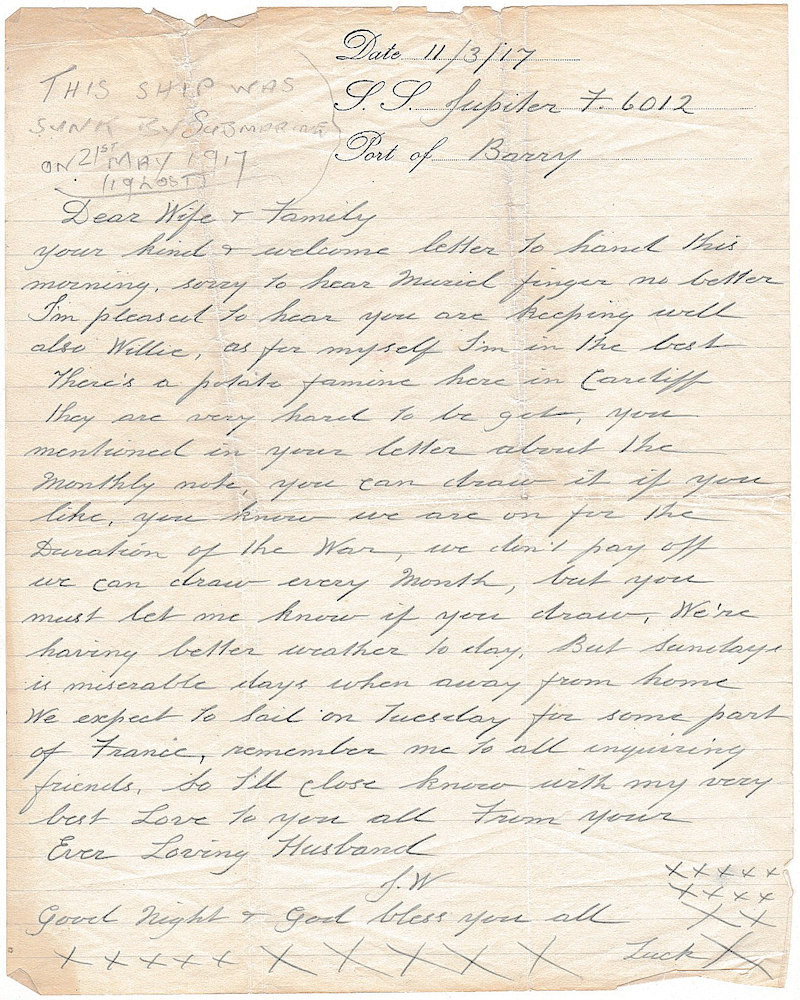 Date 11/3/17
S.S. Jupiter F. 6012
Port of Barry
THIS SHIP WAS
SUNK BY SUBMARINE
ON 21ST MAY 1917
(19 LOST)
Dear Wife & Family
your kind & welcome letter to hand this
morning, sorry to hear Muriel finger no better
I'm pleased to hear you are keeping well
also Willie, as for myself I'm in the best
There's a potato famine here in Cardiff
they are very hard to be get, you
mentioned in your letter about the
Monthly note, you can draw it if you
like, you know we are on for the
Duration of the War, we don't pay off
we can draw every Month, but you
must let me know if you draw, We're
having better weather to day. But Sundays
is miserable days when away from home
We expect to sail on Tuesday for some part
of France, remember me to all inquiring
friends, so I'll close know with my very
best Love to you all From your
Ever Loving Husband
J.W
X X X X X
X X X X
X X
Good Night & God bless you all
X X X X X X X X X X Luck X